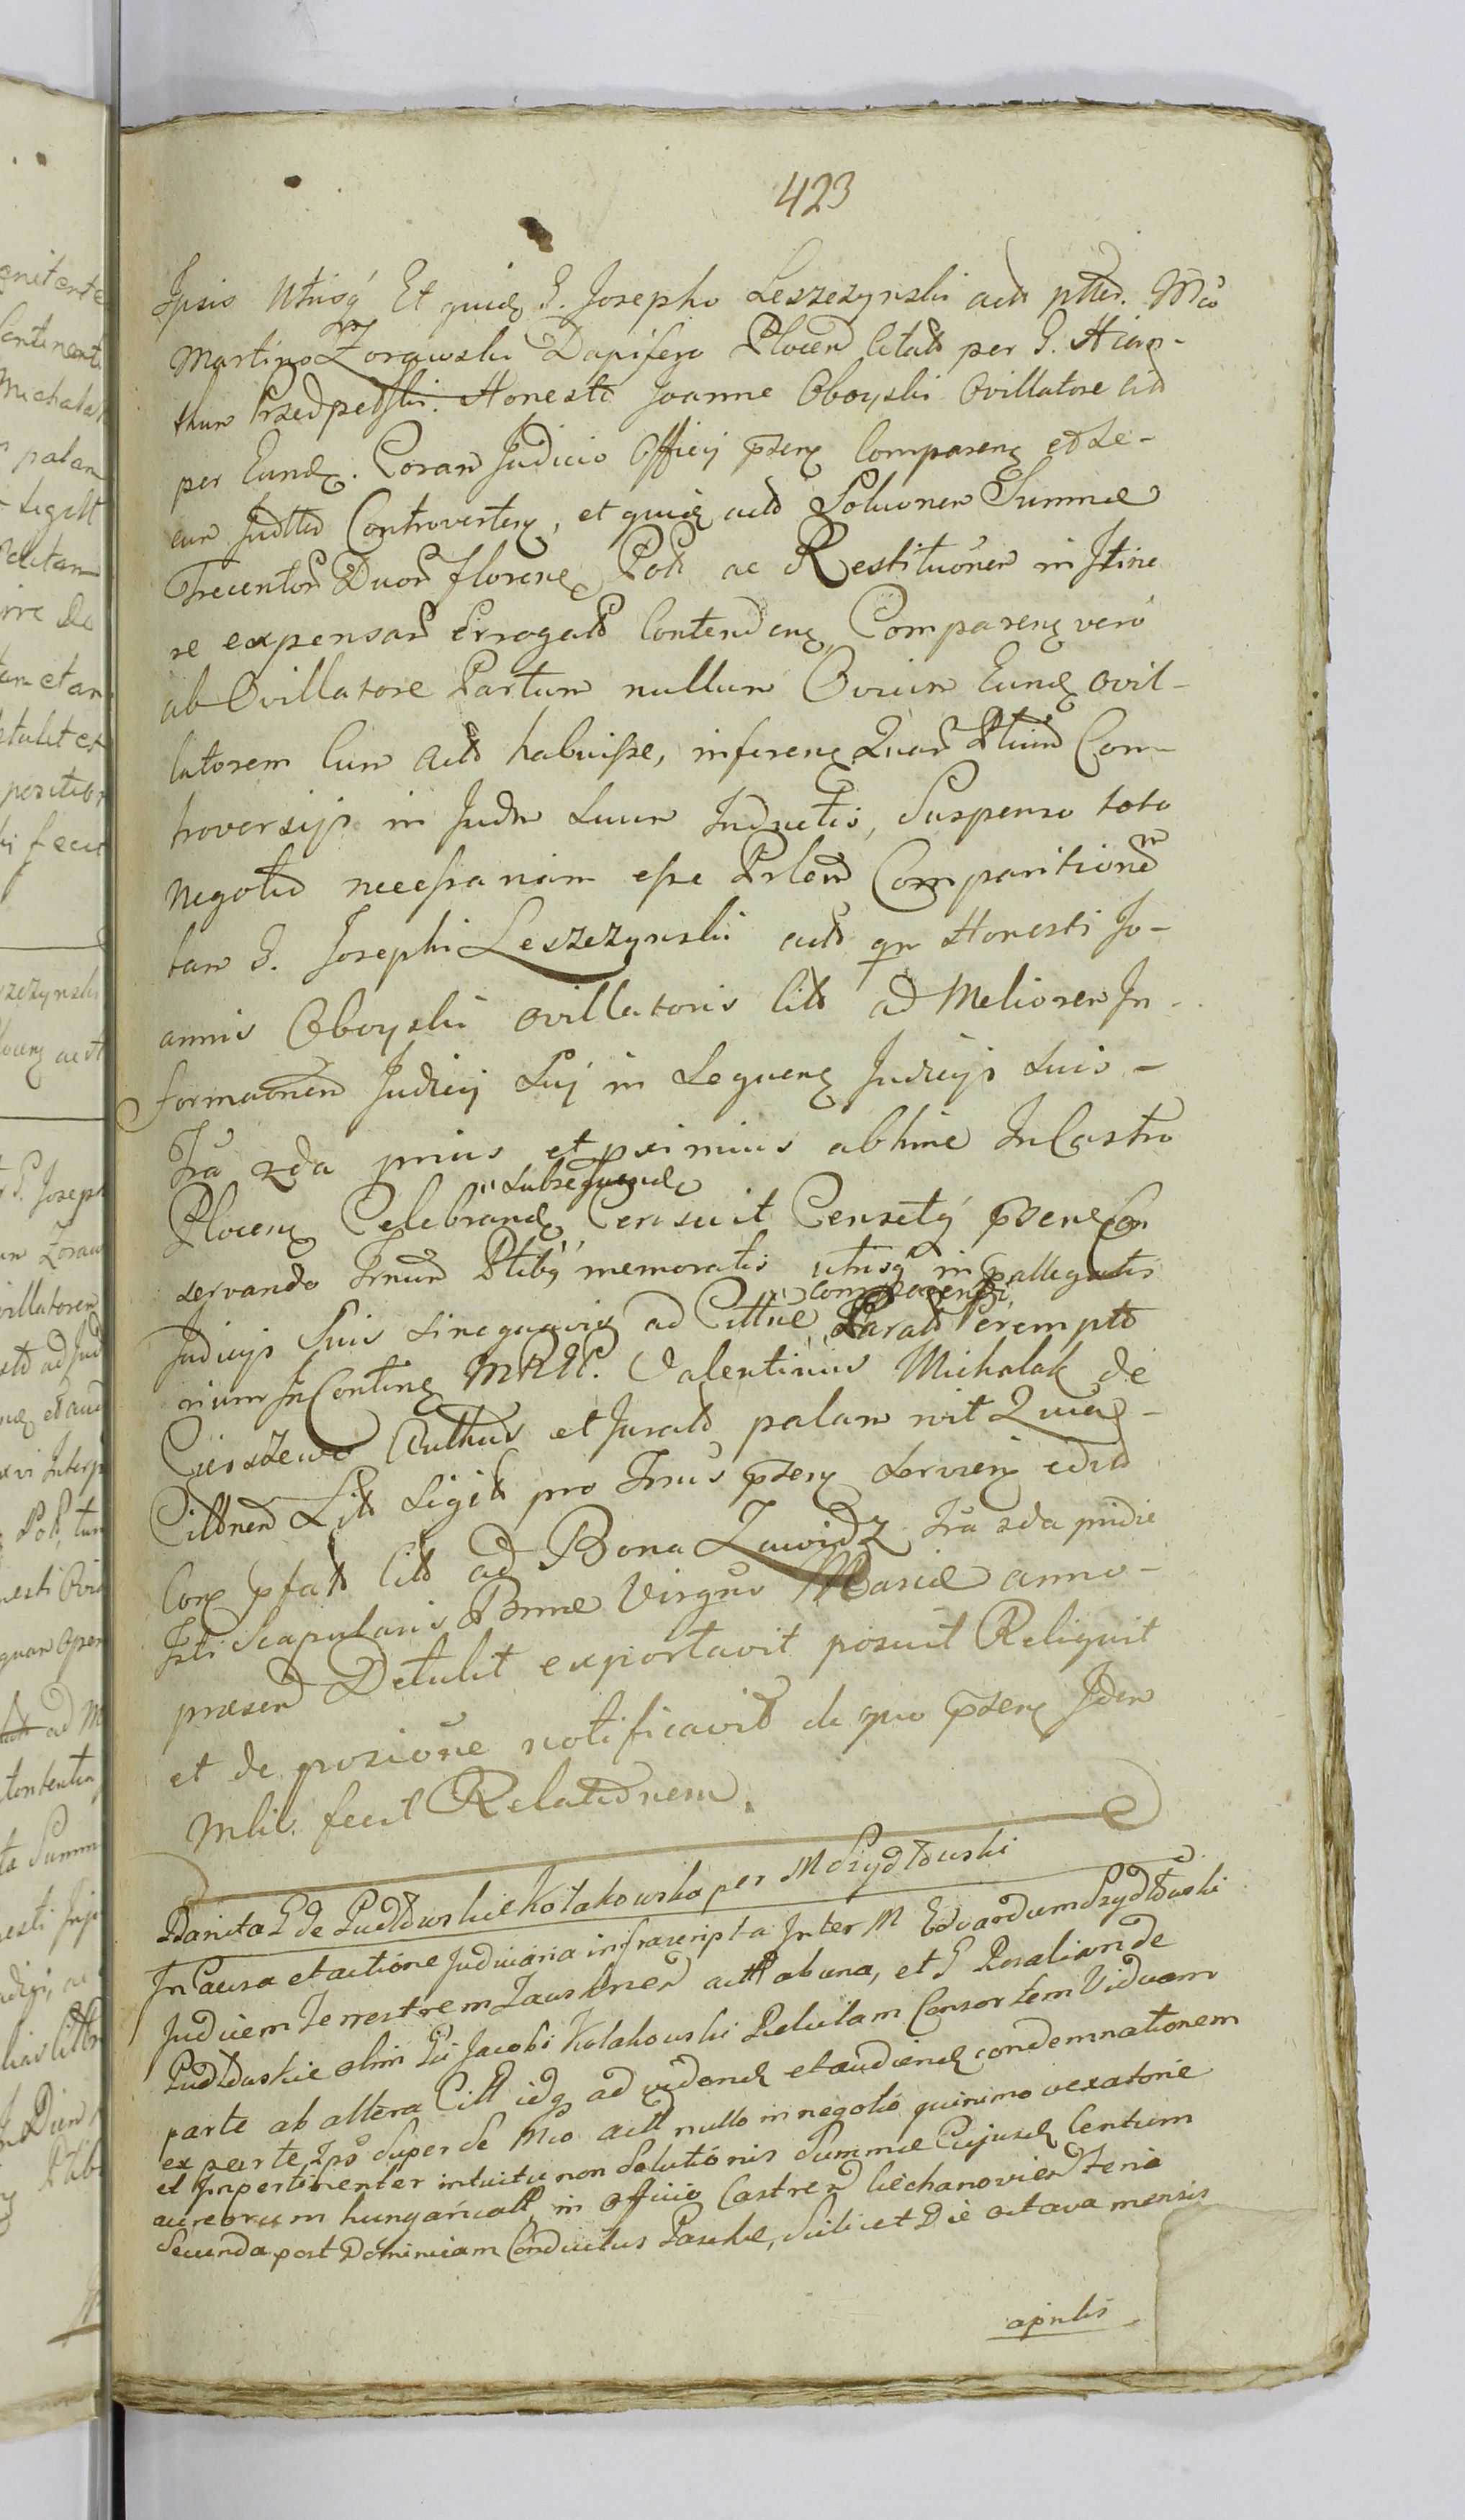 423
Ipsis Utrisq Et quidē G. Josepho Leszczynski act ptter. Mco
Martino Zorawski Dapifero Plocen Citato per G. Hiacin-
thum Przedpełski. Honesto Joanne Oboyski Ovillatore Cito
per Eund. Coram Judicio Officij pseng Compareng et Se-
cum Judtter Controverteng, et quidē acto Solucionem Summæ
Trecentor Duor floreng Pol. ac Restitucionem in Itine
re expensar Errogato Contendeng, Compareng vero
ab Ovillatore Partum nullum Ovium Eund ovil-
latorem Cum Acto habuisse, infereng Quar Ptium Con-
troversijs in Judm Suum Inductis, Suspenso toto
Negotio necessariam esse Prlem Comparitionem
tam G. Josephi Leszczynski act qm Honesti Jo-
annis Oboyski Ovillatoris Citt ad Meliorem In-
formationem Judicij Sui in Sequeng Judicijs Suis -
Fra 2da prius et pximius abhinc In Castro
Ploceng Celebrand, subsequend Censuit Censetq pseng Con
servando Trnum Ptibq memoratis utrisq in pallegatis
Judicijs Suis sinequavis ad Cittne comparendi Parato Perempto
rium In Conting MRPI. Valentinus Michalak de
Ciesszewo Authus et Jurato palam rvit Quia -
Cittnem Lit Sigilt pro Trnus pseng Servieng edito
Cong pfato Cito ad Bona Zawidz Fra 2da pridie
Fsti Scapularis Bmæ Virgnis Mariæ anno -
præsen Detulit exportavit posuit Reliquit
et de posicione notificavit de quo pseng Idem
Mlis. fecit Relationem.
Banita G de Pudłowskie Kołakowska per M Szydłowski
In Causa et actione Judiciaria infrascripta Inter M Edvardum Szydłowski
Judicem Terrestrem Zawskren actt ab una, et G Rosaliam de
Pudłowskie olim Gsi Jacobi Kołakowski Relictam Consortem Viduam
parte ab altera Citt idq ad videnđ et audienđ condemnationem
ex parte Ipso Super Se Mco actt nullo in negotio quinimo vexatorie
et Inpertinenter intuitu non Solutionis Summæ Cujusđ Centum
aureorum hungaricall, in Officio Castren Ciechanovien Feria
Secunda post Dominicam Conductus Paschæ, Scilicet Die octava mensis
aprilis